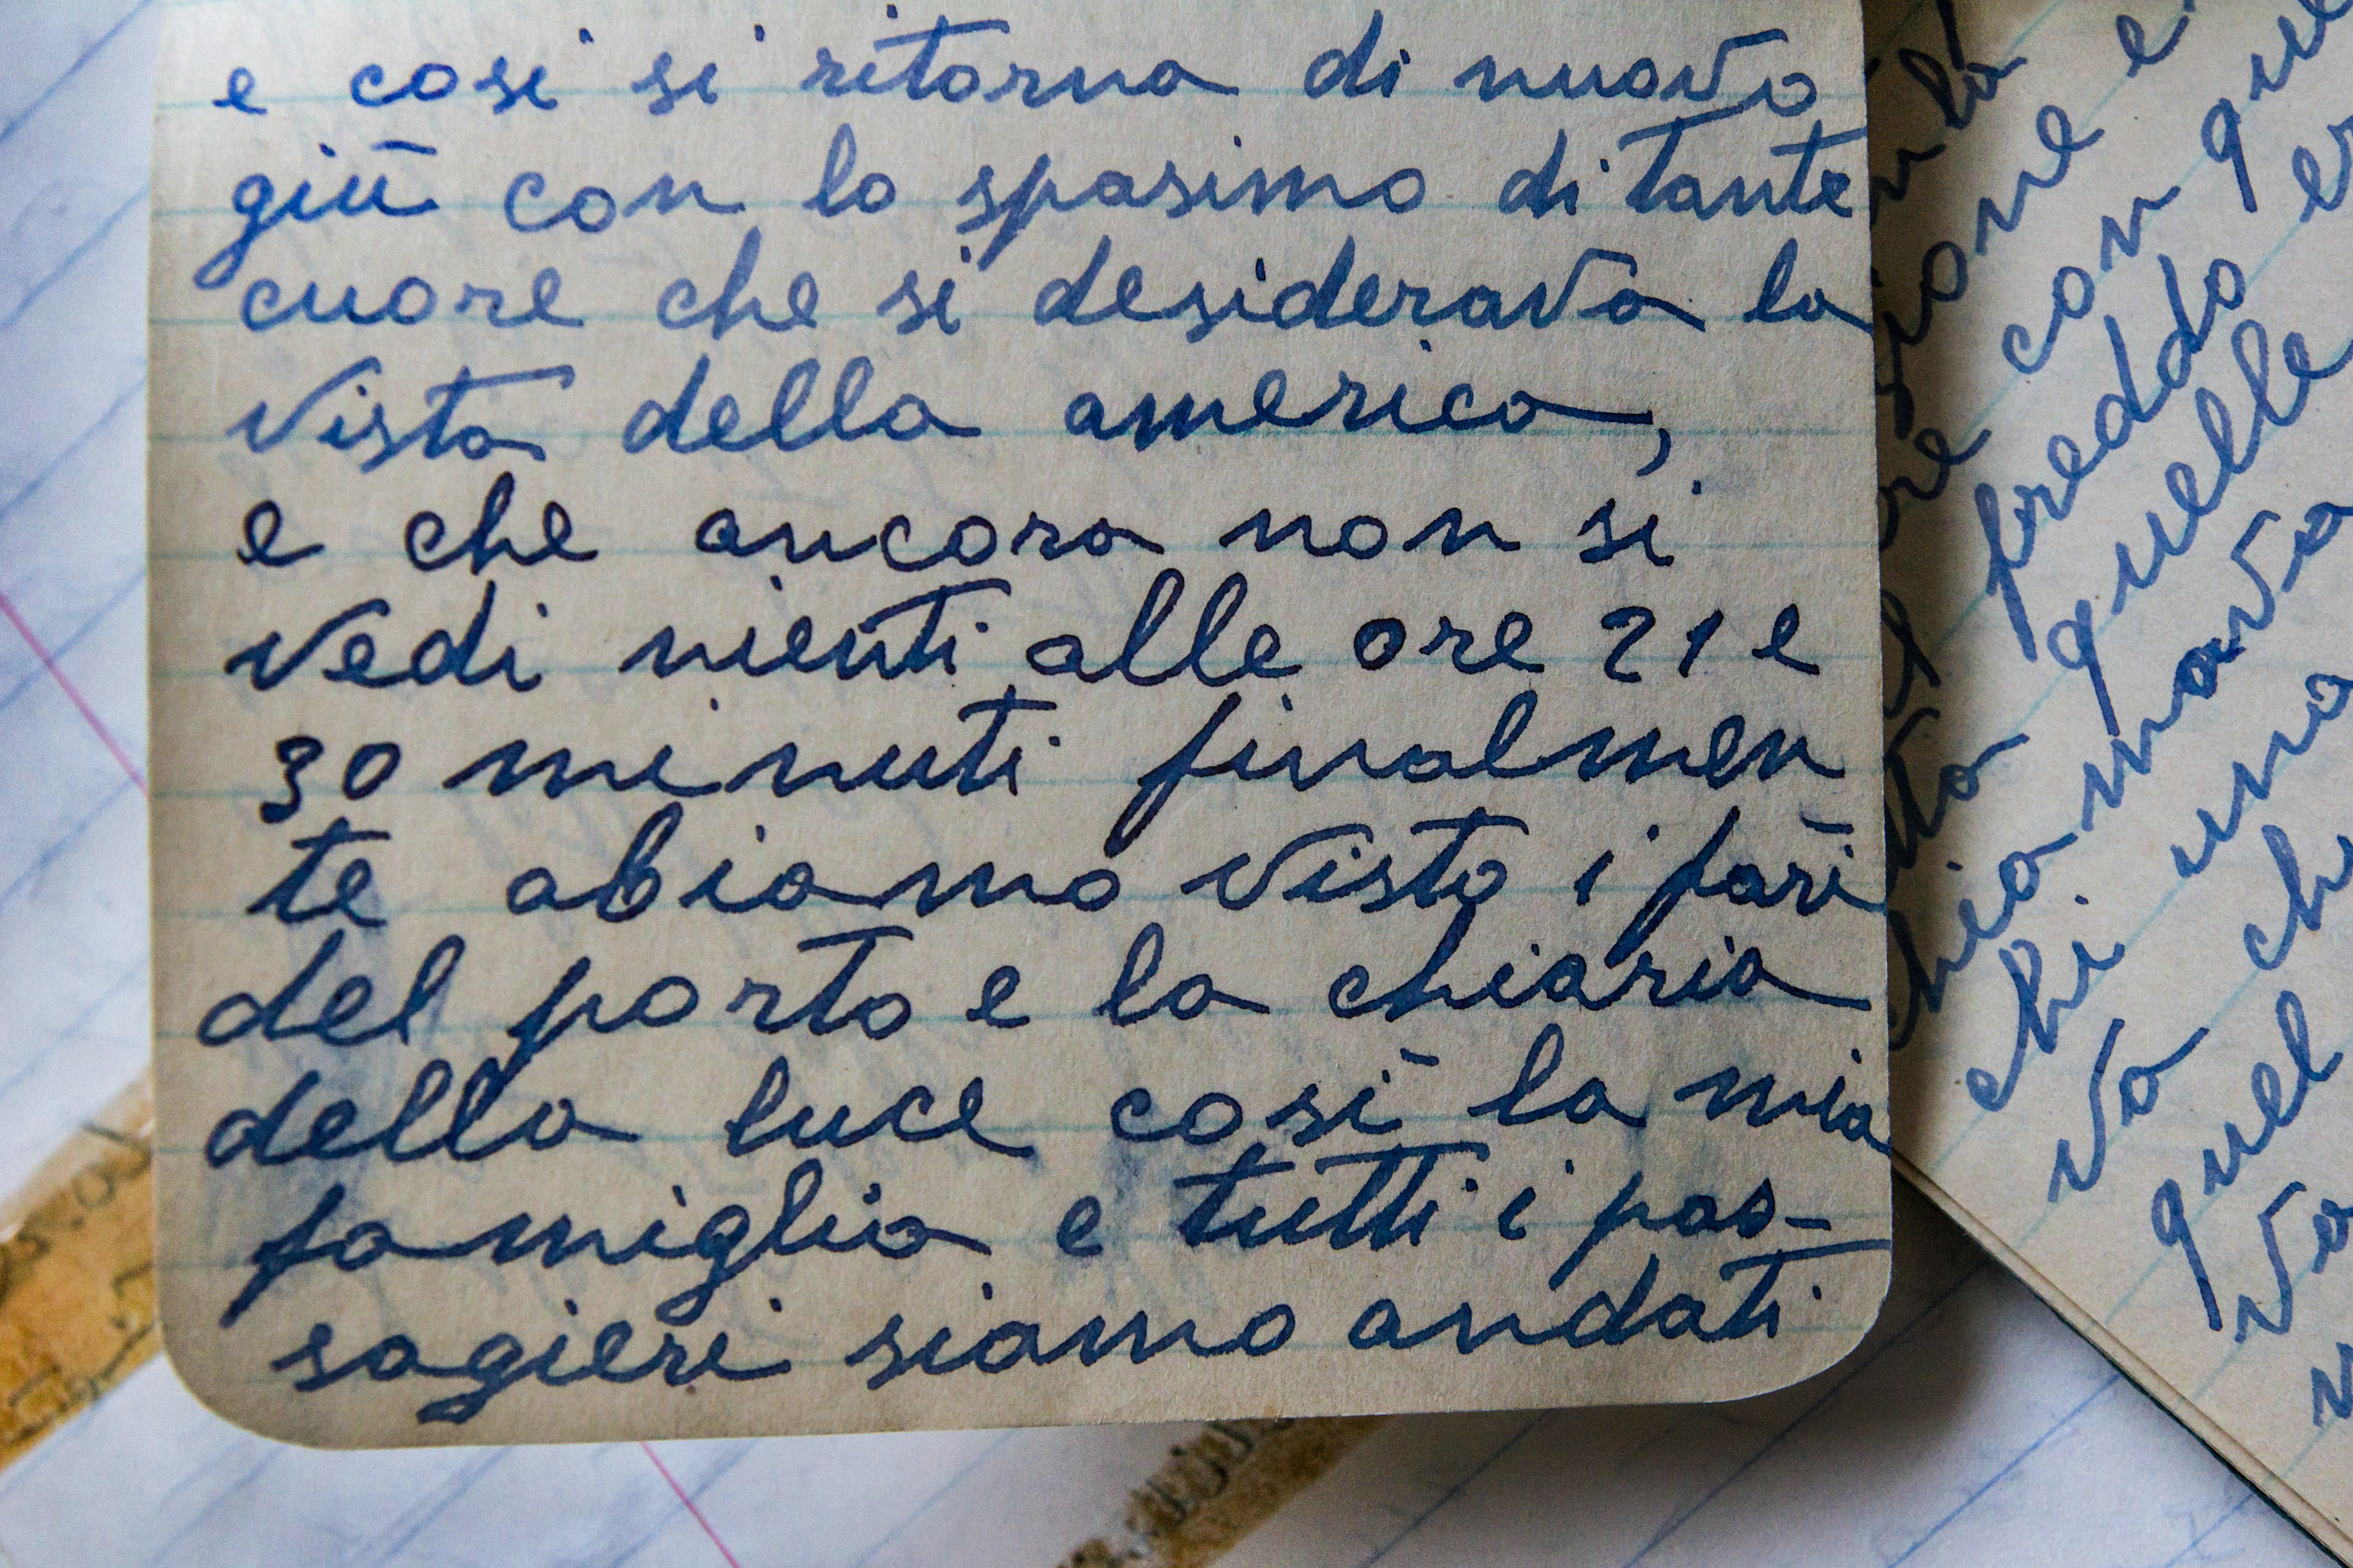 e cosi si ritorna di nuovo
giū con lo spasimo di tante
cuore che si desiderava la
vista della america,
e che ancora non si
vedi nienti alle ore 21 e
30 minuti finalmen
te abiamo visto i fari
del porto e la chiaria
della luce cosī la mia
famiglia e tutti i pas-
sagieri siamo andati
con
freddo
quelle
chi una
va
quel